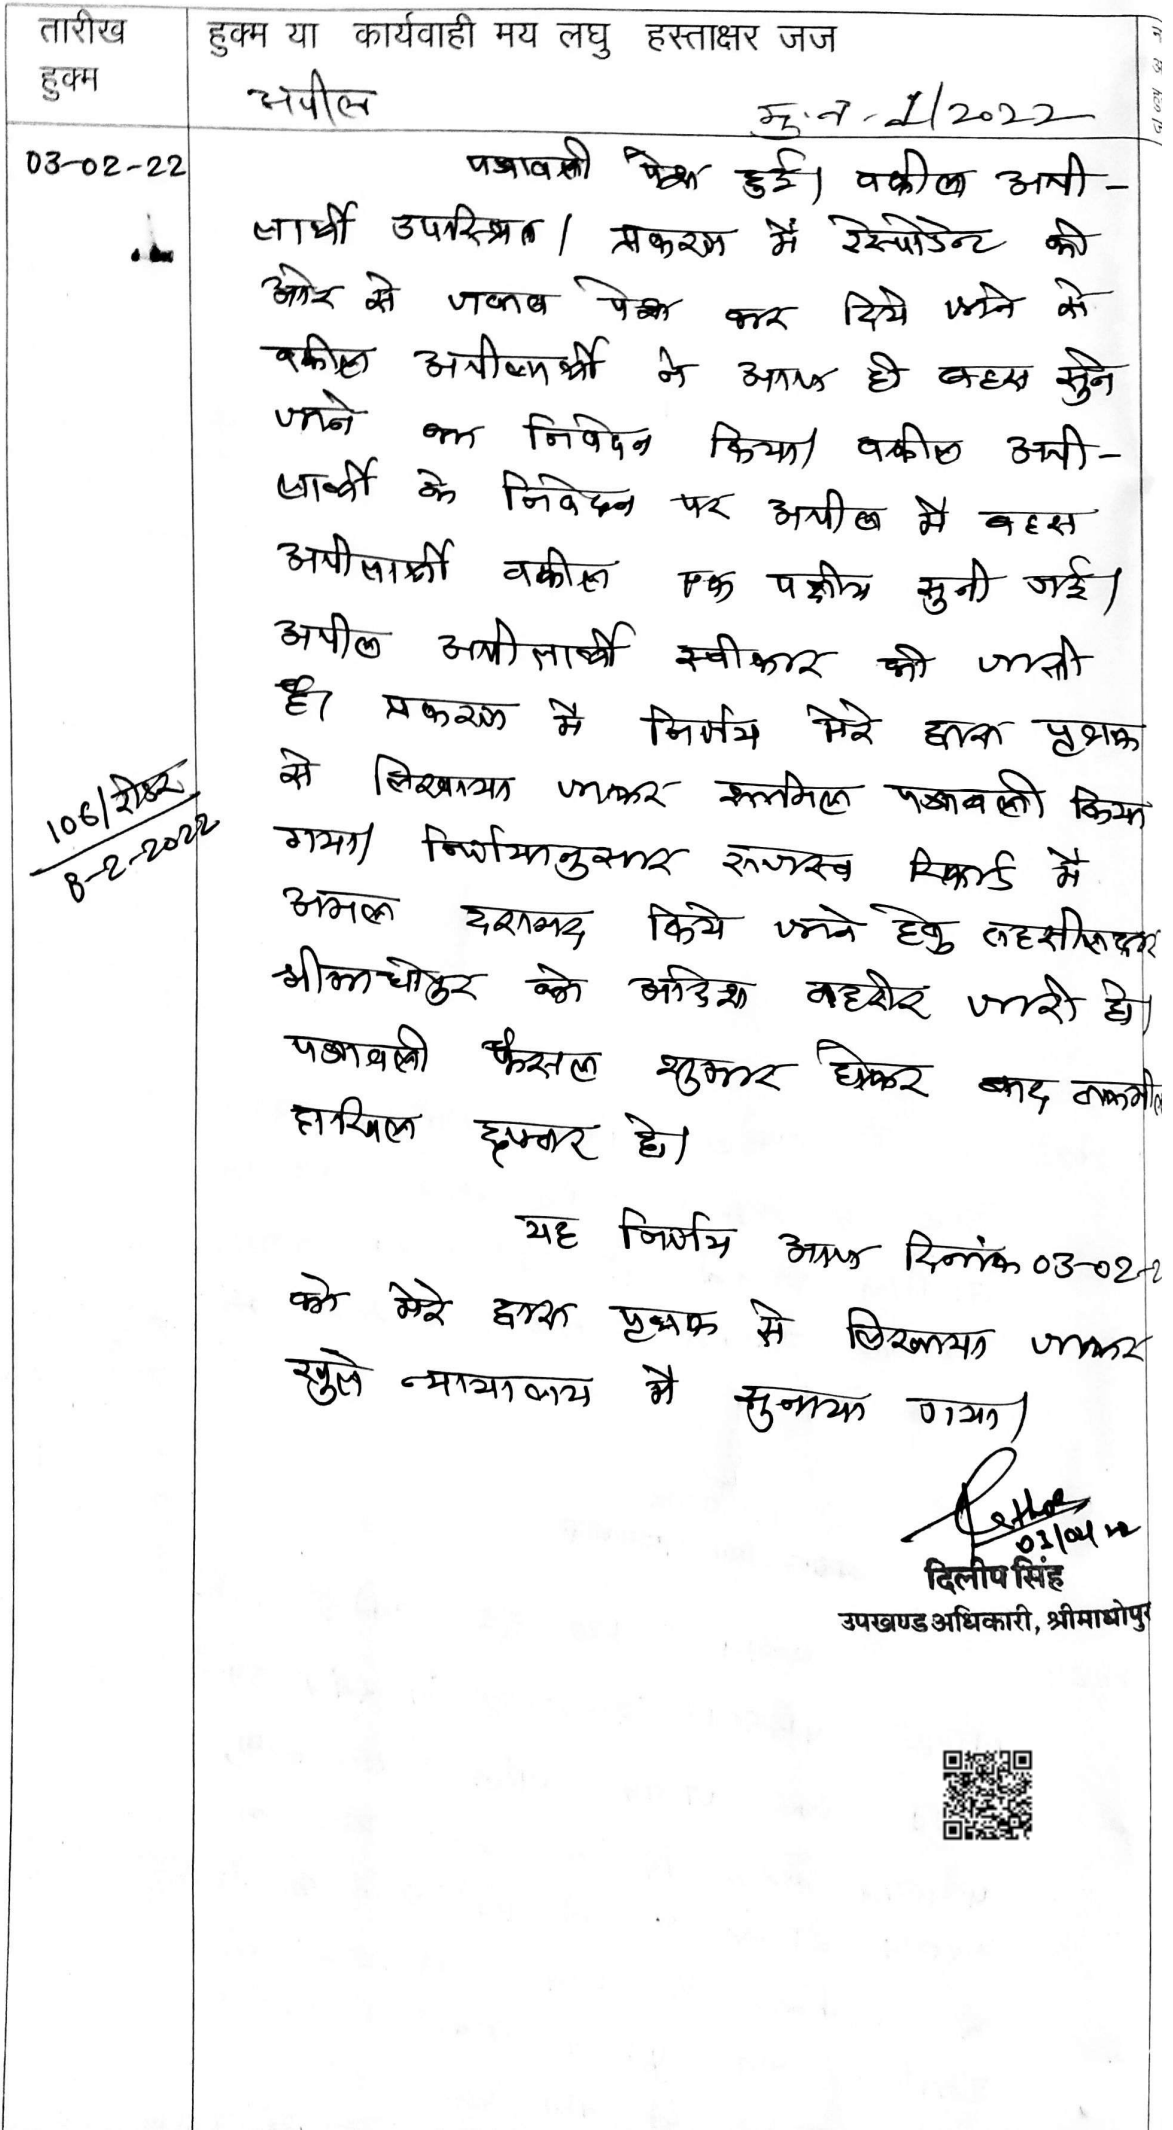 तारीख
हुक्म
हुक्म या कार्यवाही मय लघु हस्ताक्षर जज
अपील
मु.न. 1/2022
03-02-22
पत्रावली पेश हुई। वकील अपी-
लार्थी उपस्थित। प्रकरण में रेस्पोडेन्ट की
ओर से जवाब पेश कर दिये जाने से
वकील अपीलार्थी ने आज ही बहस सुने
जाने का निवेदन किया। वकील अपी-
लार्थी के निवेदन पर अपील में बहस
अपीलार्थी वकील एक पक्षीय सुनी गई।
अपील अपीलार्थी स्वीकार की जाती
है। प्रकरण में निर्णय मेरे द्वारा पृथक
से लिखाया जाकर शामिल पत्रावली किया
106/रीडर
8-2-2022
गया। निर्णयानुसार राजस्व रिकार्ड में
अमल दरामद किये जाने हेतु तहसीलदार
श्रीमाधोपुर को आदेश तहरीर जारी हो।
पत्रावली फैसल शुमार होकर बाद तकमील
दाखिल दफ्तर हो।
यह निर्णय आज दिनांक 03-02-2
को मेरे द्वारा पृथक से लिखाया जाकर
खुले न्यायालय में सुनाया गया।
दिलीप सिंह
उपखण्ड अधिकारी, श्रीमाधोपुर